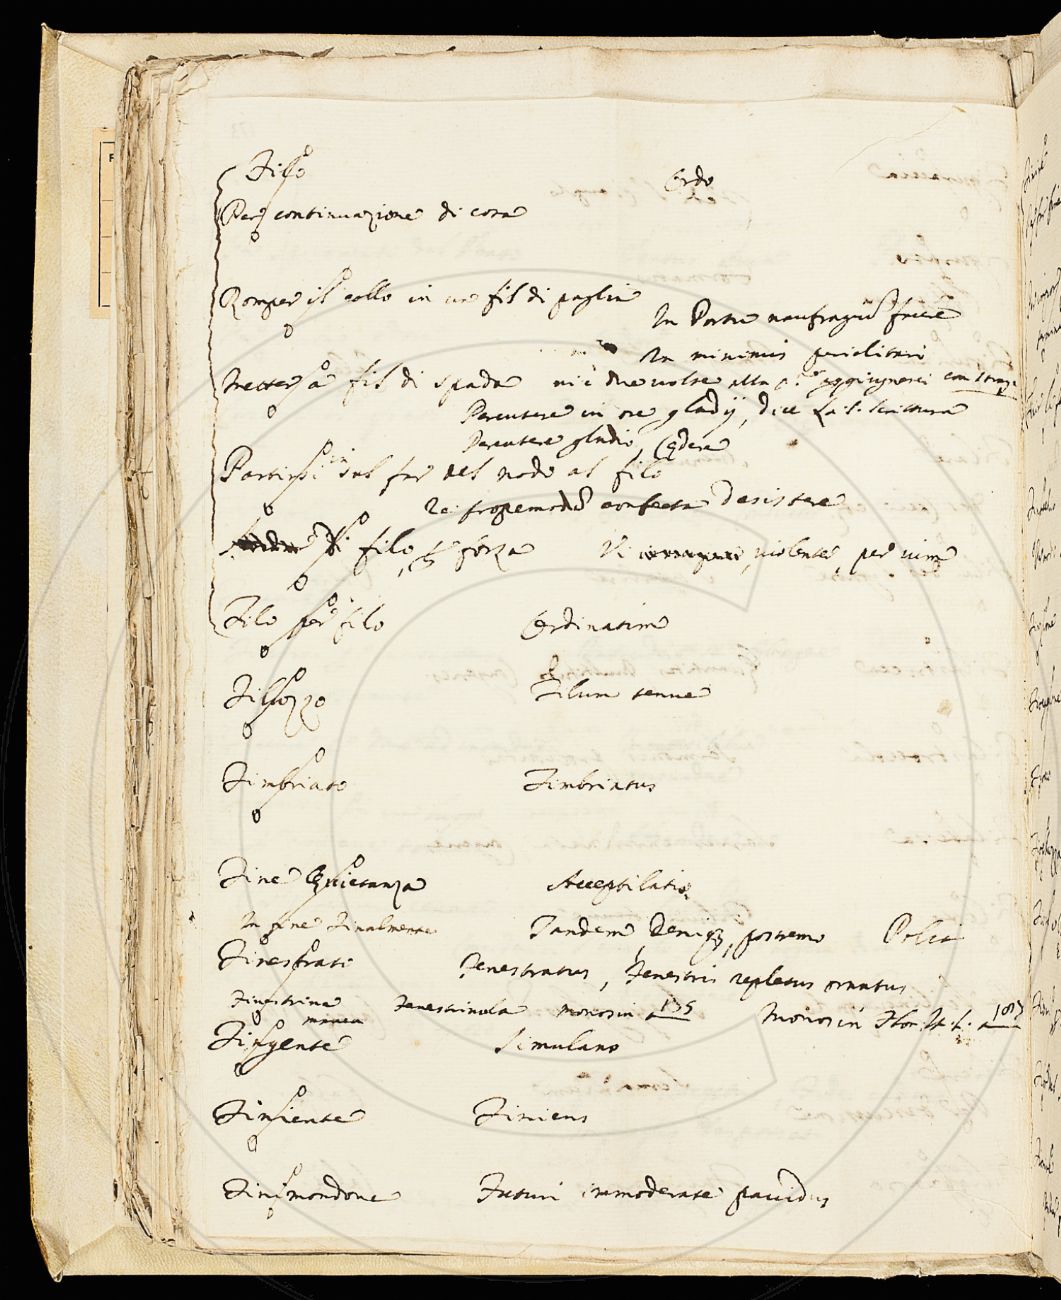 Filo Ordo
Per continuazione di cosa
Romper il collo in un fil di paglia
In Portu naufragiũ facere
In minimis periclitari
Metter à fil di spada
Percutere in ore gladij, dice la S. Scrittura
Percutere gladio, Cędere
Partirsi in sul far del nodo al filo
Re propemodũ confecta desistere
Di filo, p forza Vi, violenter, per vim
Filo per filo Ordinatim
Fillozzo Filum tenue
Fimbriato Fimbriatus
Fine Quietanza Acceptilatio
In fine Finalmente Tandem, Deniq3, postremo
Finestrato Fenestratus, fenestris repletus ornatus
Finestrina Fenestrinola Monosin 135 Monosin Flor. It. L.
Fingente Simulans
Finiente Finiens
Finimondone Futuri immoderate pavidus